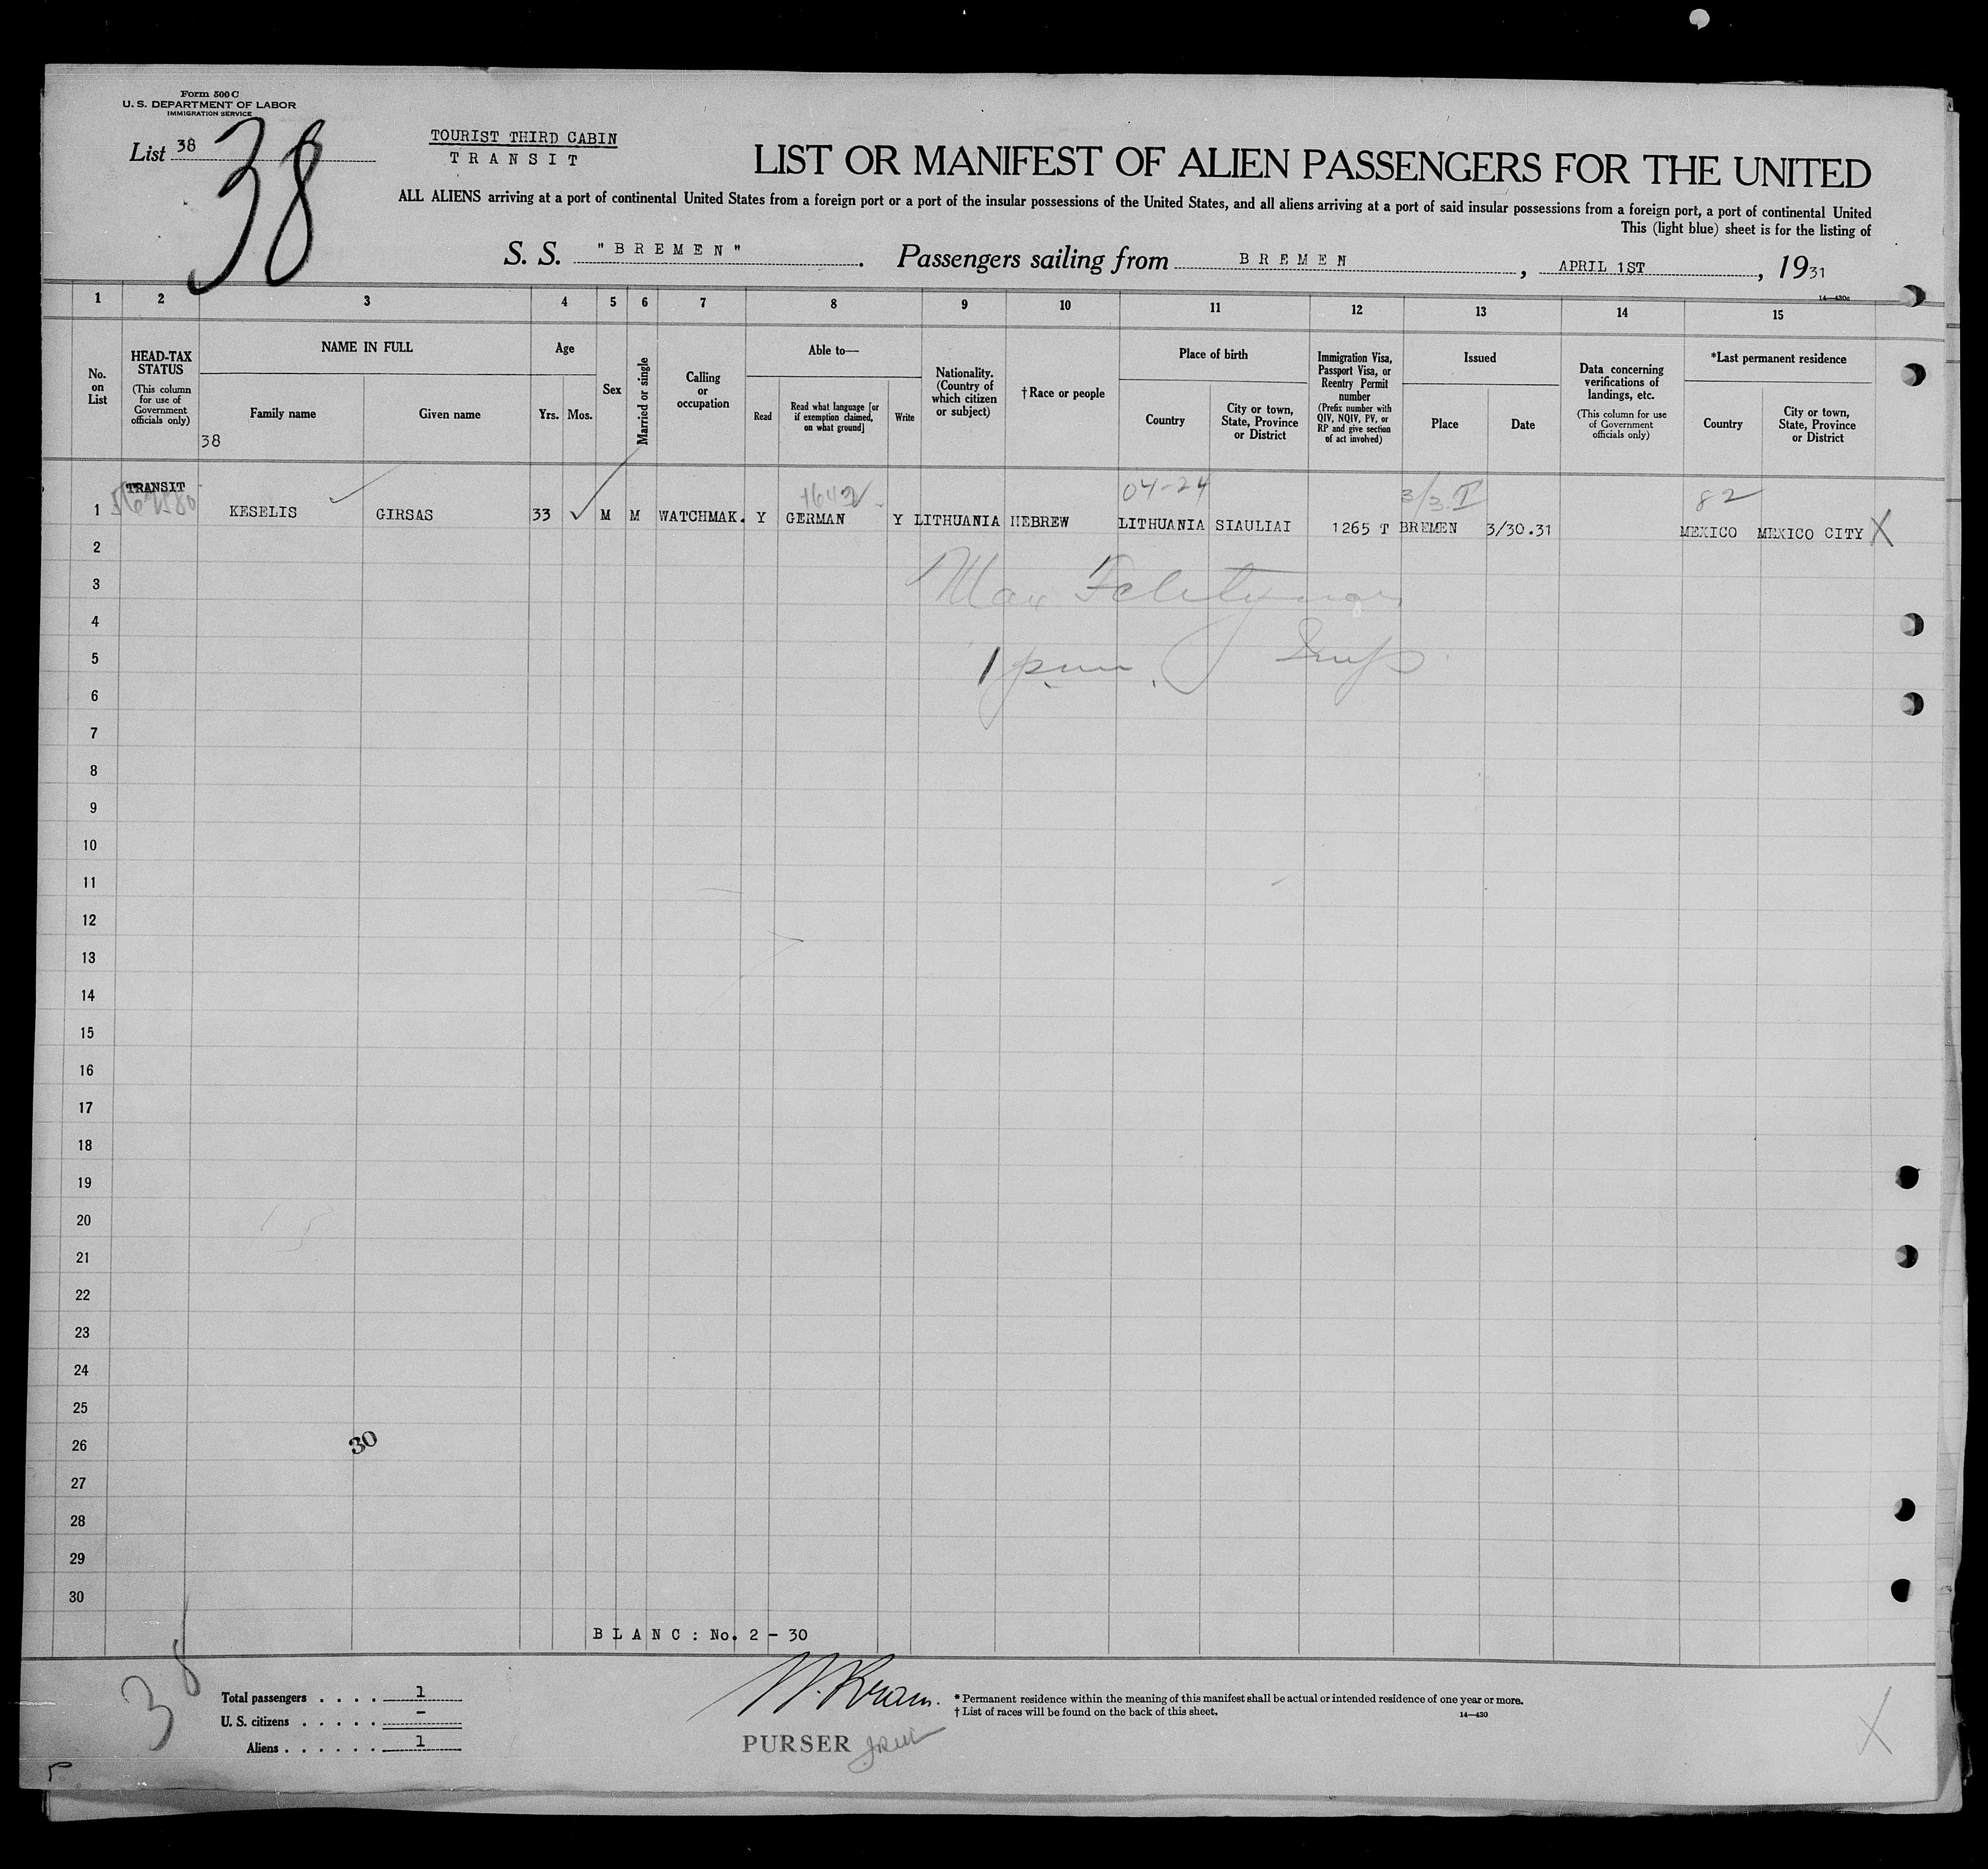 Form 500 C
U. S. DEPARTMENT OF LABOR
IMMIGRATION SERVICE
List 38
38
TOURIST THIRD CABIN
TRANSIT
LIST OR MANIFEST OF ALIEN PASSENGERS FOR THE UNITED
ALL ALIENS arriving at a port of continental United States from a foreign port or a port of the insular possessions of the United States, and all aliens arriving at a port of said insular possessions from a foreign port, a port of continental United
This (light blue) sheet is for the listing of
S. S. "BREMEN". Passengers sailing from BREMEN, APRIL 1ST, 1931
14—430c
1 2 3 4 5 6 7 8 9 10 11 12 13 14 15
No. on List
HEAD-TAX STATUS
(This column for use of Government officials only)
NAME IN FULL
Family name
Given name
38
Age
Yrs. Mos.
Sex
Married or single
Calling or occupation
Able to—
Read
Read what language [or if exemption claimed, on what ground]
Write
Nationality. (Country of which citizen or subject)
† Race or people
Place of birth
Country
City or town, State, Province or District
Immigration Visa, Passport Visa, or Reentry Permit number
(Prefix number with QIV, NQIV, PV, or RP and give section of act involved)
Issued
Place
Date
Data concerning verifications of landings, etc.
(This column for use of Government officials only)
*Last permanent residence
Country
City or town, State, Province or District
TRANSIT
04-24
82
1 KESELIS GIRSAS 33 M M WATCHMAK. Y GERMAN Y LITHUANIA HEBREW LITHUANIA SIAULIAI 1265 T BREMEN 3/30.31 MEXICO MEXICO CITY X
2
3 Max
4
5
6
7
8
9
10
11
12
13
14
15
16
17
18
19
20
21
22
23
24
25
26 30
27
28
29
30
BLANC : No. 2 - 30
38
Total passengers . . . . 1
U. S. citizens . . . . . -
Aliens . . . . . . 1
PURSER
* Permanent residence within the meaning of this manifest shall be actual or intended residence of one year or more.
† List of races will be found on the back of this sheet.
14—430
X